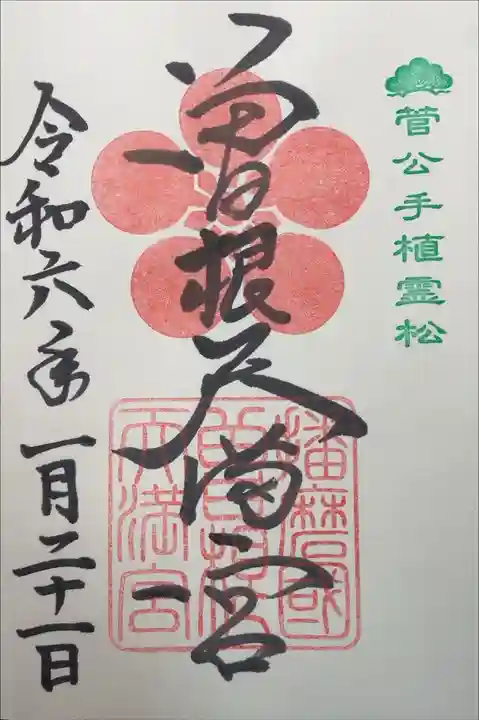 菅公手植霊松
曽根天満宮
播磨国
曽根
天満宮
令和六年一月二十一日